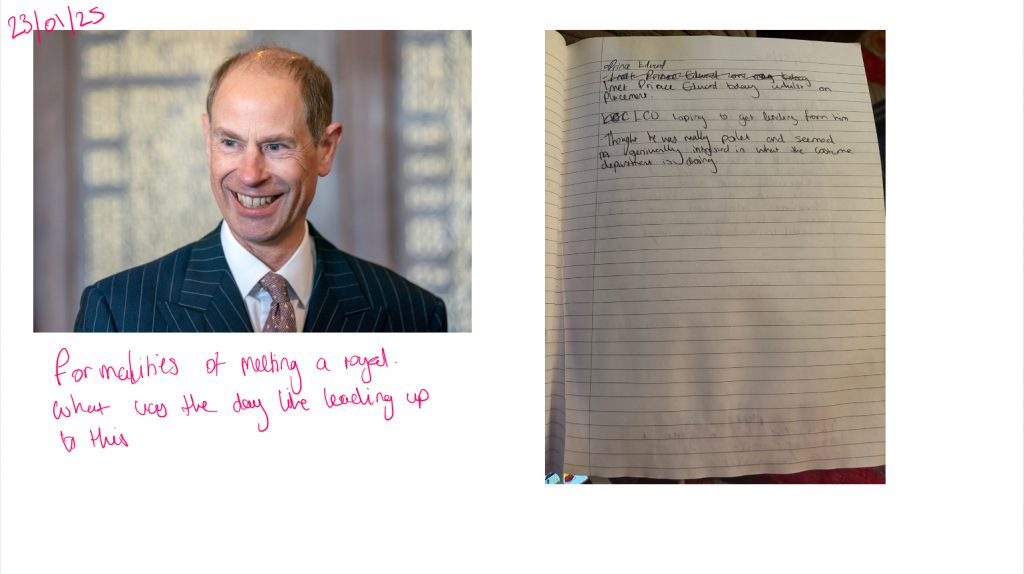 23/01/25
Formalities of meeting a royal.
what was the day like leading up
to this
Prince Edward
I met Prince Edward today whilst on
placement.
LCO hoping to get funding from him
Thought he was really polet and seemed
intrested in what the costume
department is doing